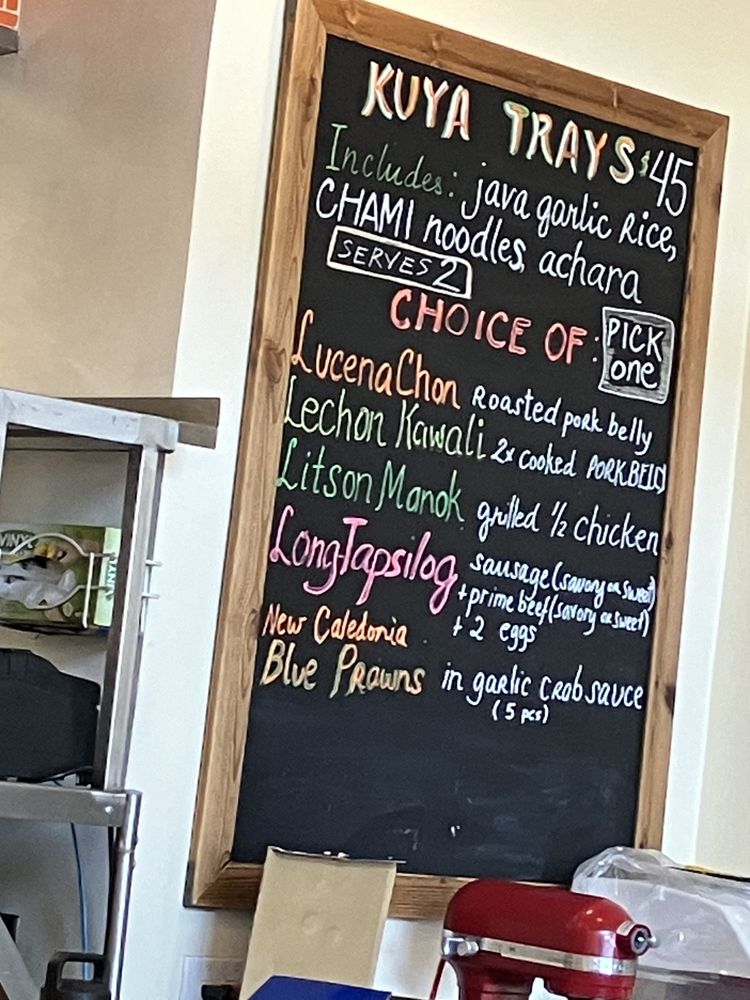 KUYA TRAYS $45
Includes: java garlic Rice,
CHAMI noodles, achara
SERVES 2
CHOICE OF: PICK one
LucenaChon Roasted pork belly
Lechon Kawali 2x cooked PORKBELLY
Litson Manok grilled 1/2 chicken
Long-Tapsilog sausage (savory or sweet)
+ prime beef (savory or sweet)
+ 2 eggs
New Caledonia
Blue Prawns in garlic crab sauce
(5 pcs)
VINYL